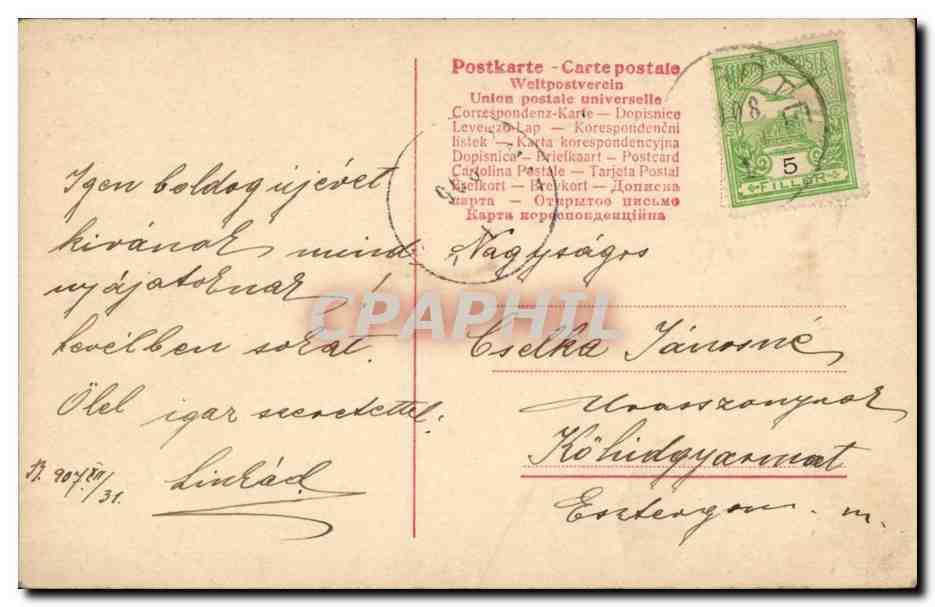 Postkarte - Carte postale
Weltpostverein
Union postale universelle
Correspondenz-Karte — Dopisnice
Levelező-Lap — Korespondenční
lístek — Karta korespondencyjna
Dopisnica — Briefkaart — Postcard
Cartolina Postale — Tarjeta Postal
Brefkort — Brevkort — Дописна
карта — Открытое письмо
Карта кореспонденційна
5
FILLÉR
Igen boldog újévet
kivánok mind-
nyájatoknak!
levélben sokat.
Ölel igaz szeretettel.
907 XII/31.
Nagyságos
Cselka Jánosné
Urasszonynak
Kőhidgyarmat
Esztergom m.
CPAPHIL